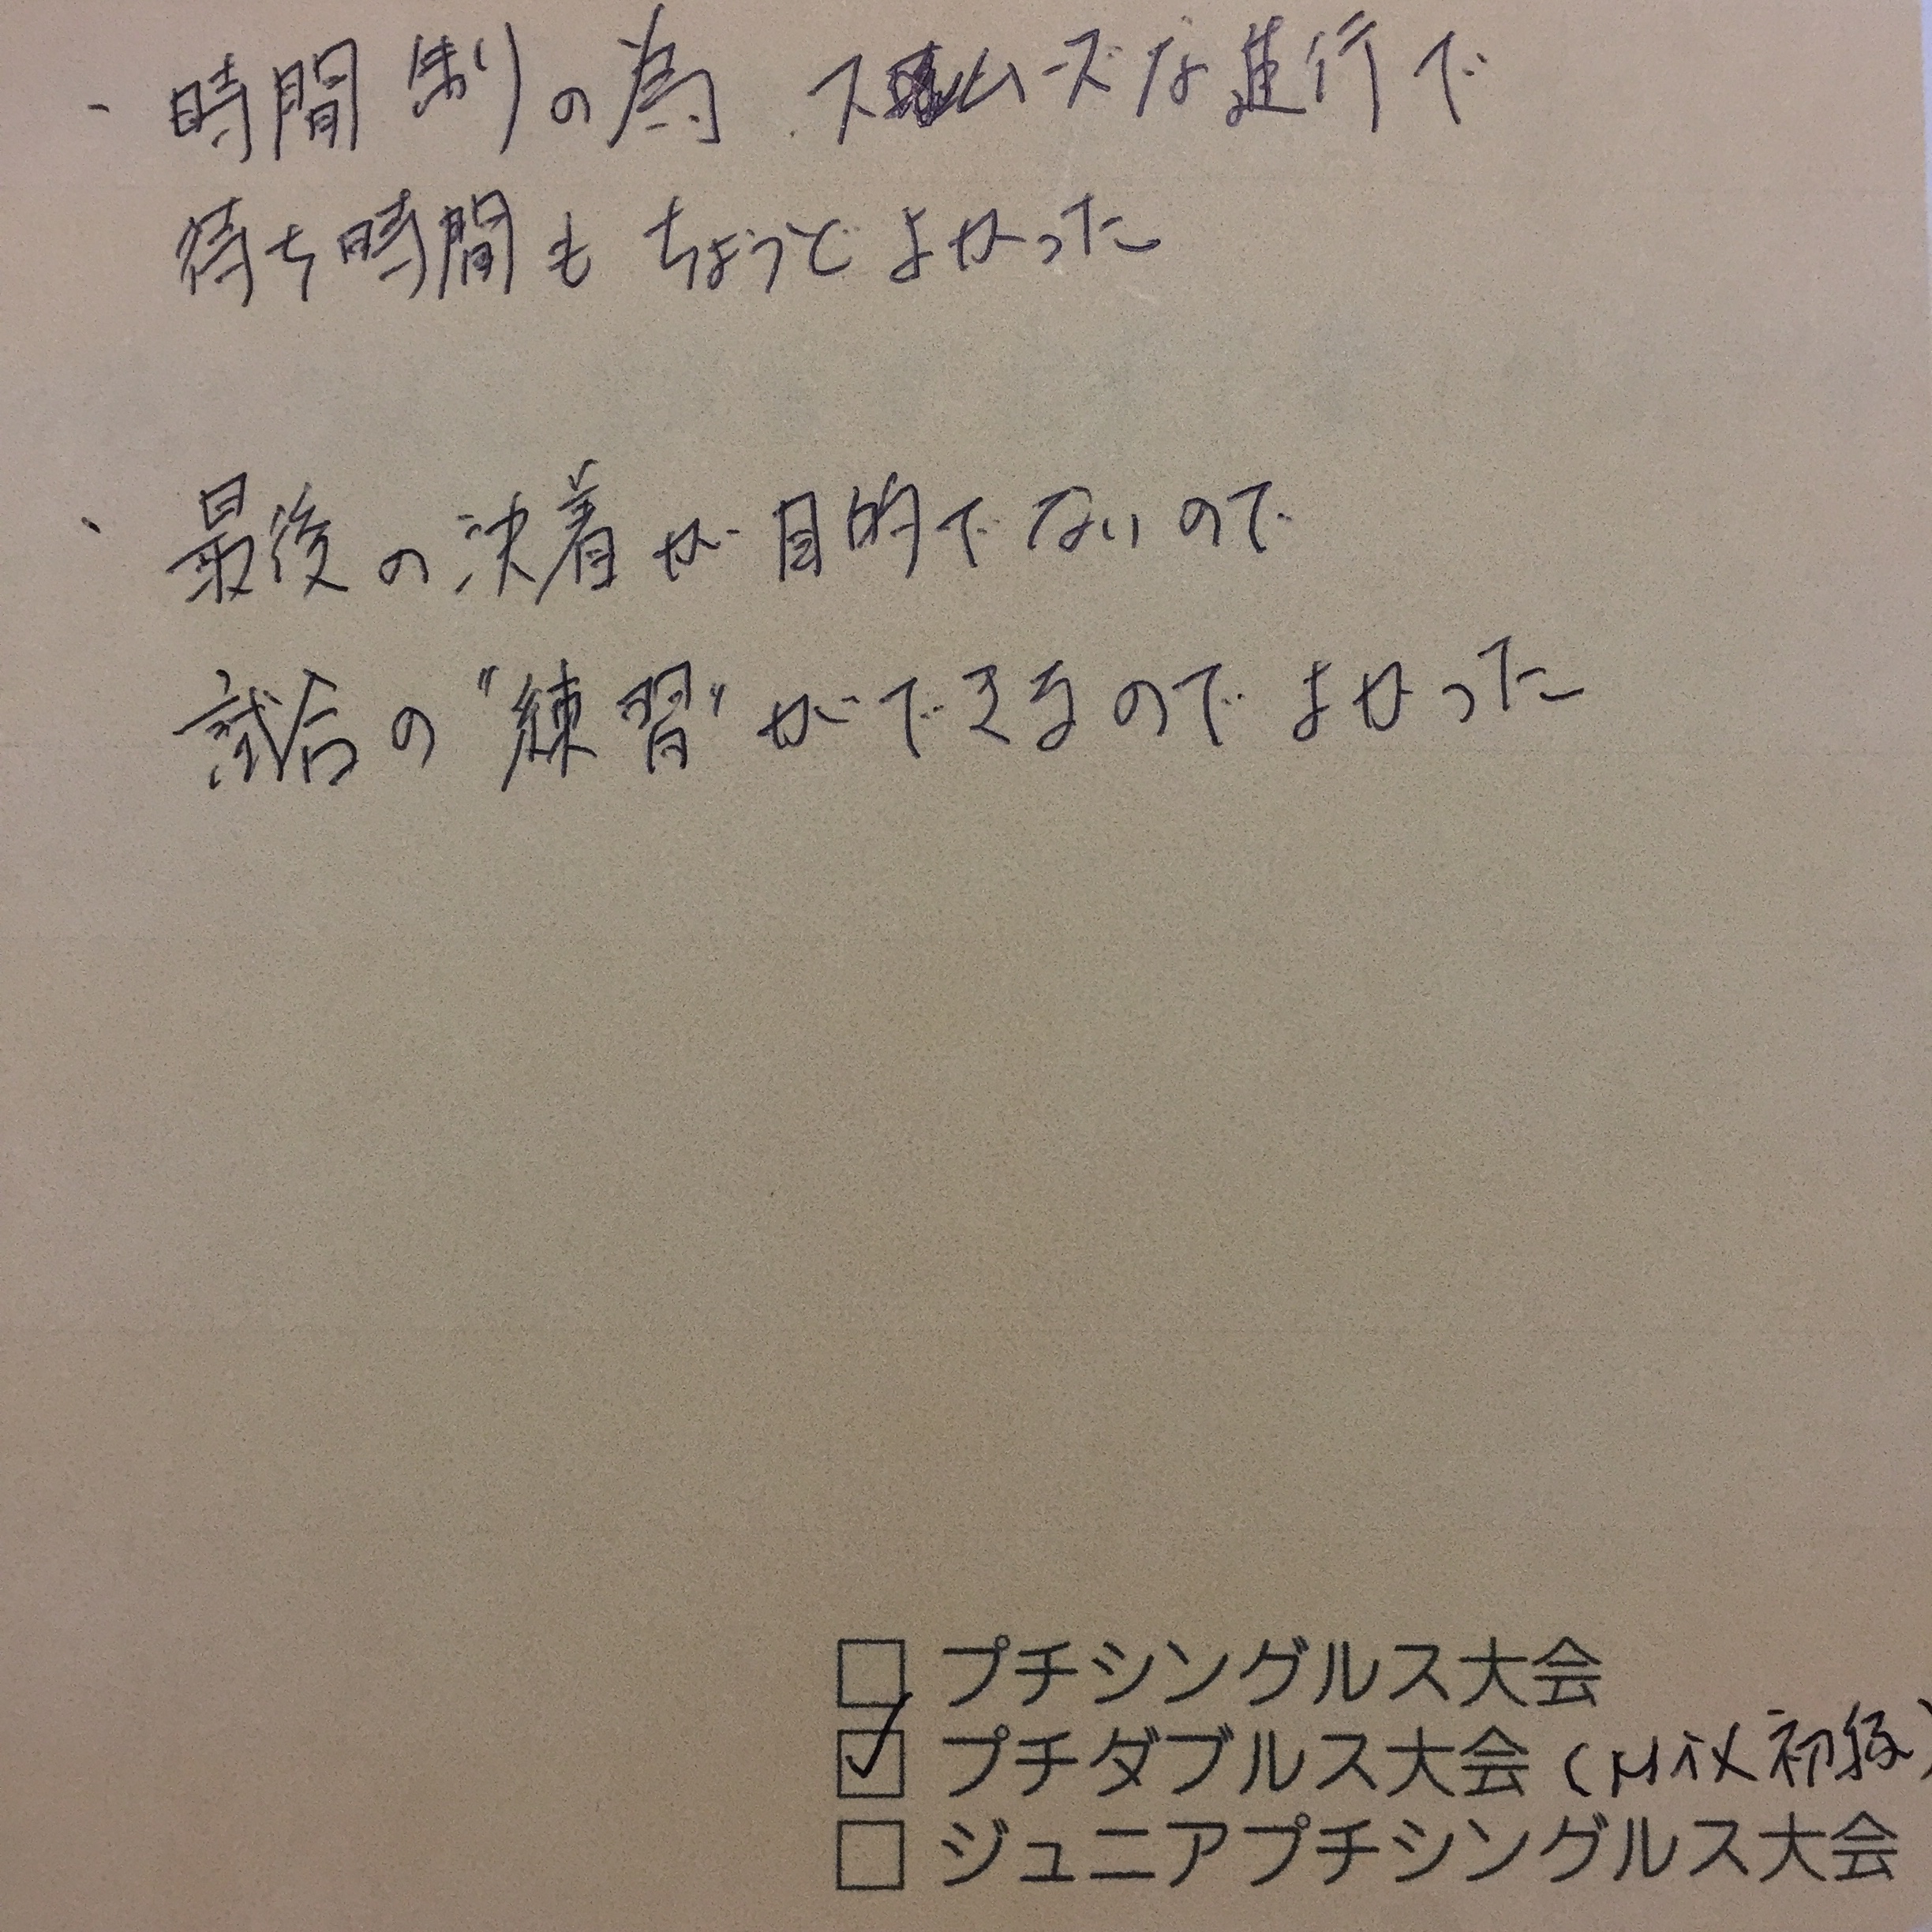 ・時間制の為、スムーズな進行で
待ち時間もちょうどよかった
・最後の決着が目的でないので
試合の"練習"ができるのでよかった
□プチシングルス大会
☑プチダブルス大会(MIX初級)
□ジュニアプチシングルス大会